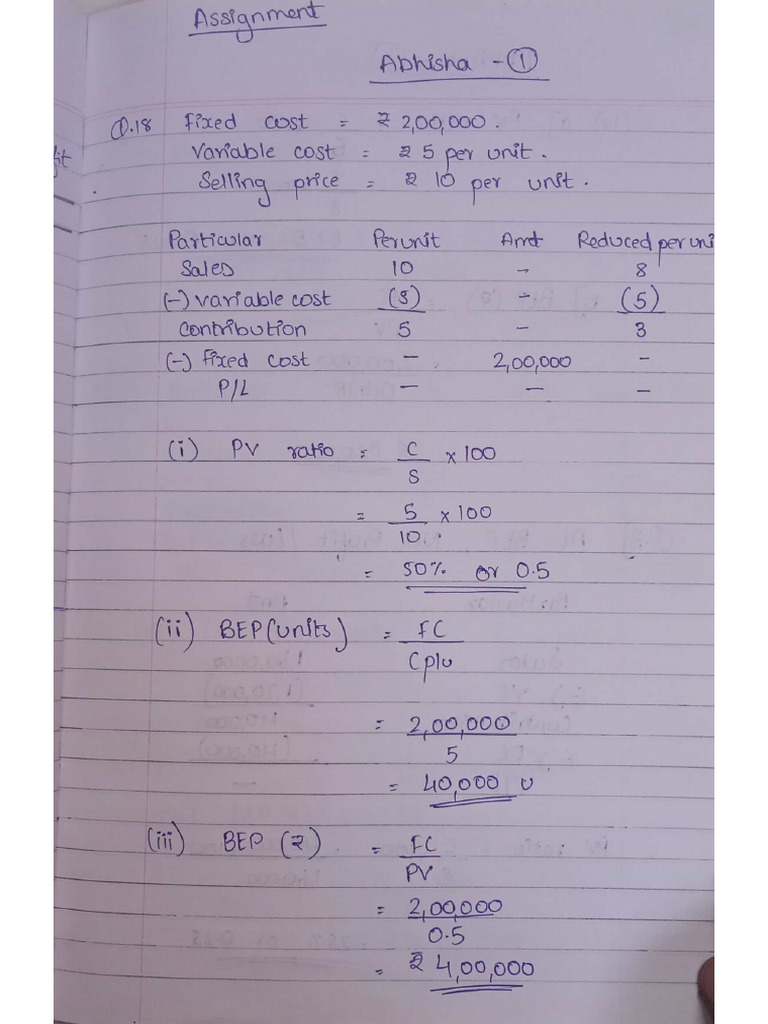 Assignment
Abhisha - ①
Q.18 Fixed cost = ₹ 2,00,000.
Variable cost = ₹ 5 per unit.
Selling price = ₹ 10 per unit.
fit
Particular Per unit Amt Reduced per uni
Sales 10 - 8
(-) variable cost (5) - (5)
Contribution 5 - 3
(-) Fixed cost - 2,00,000 -
P/L - - -
(i) PV ratio = C/S × 100
= 5/10 × 100
= 50% or 0.5
(ii) BEP (units) = FC/Cplu
= 2,00,000/5
= 40,000 u
(iii) BEP (₹) = FC/PV
= 2,00,000/0.5
= ₹ 4,00,000